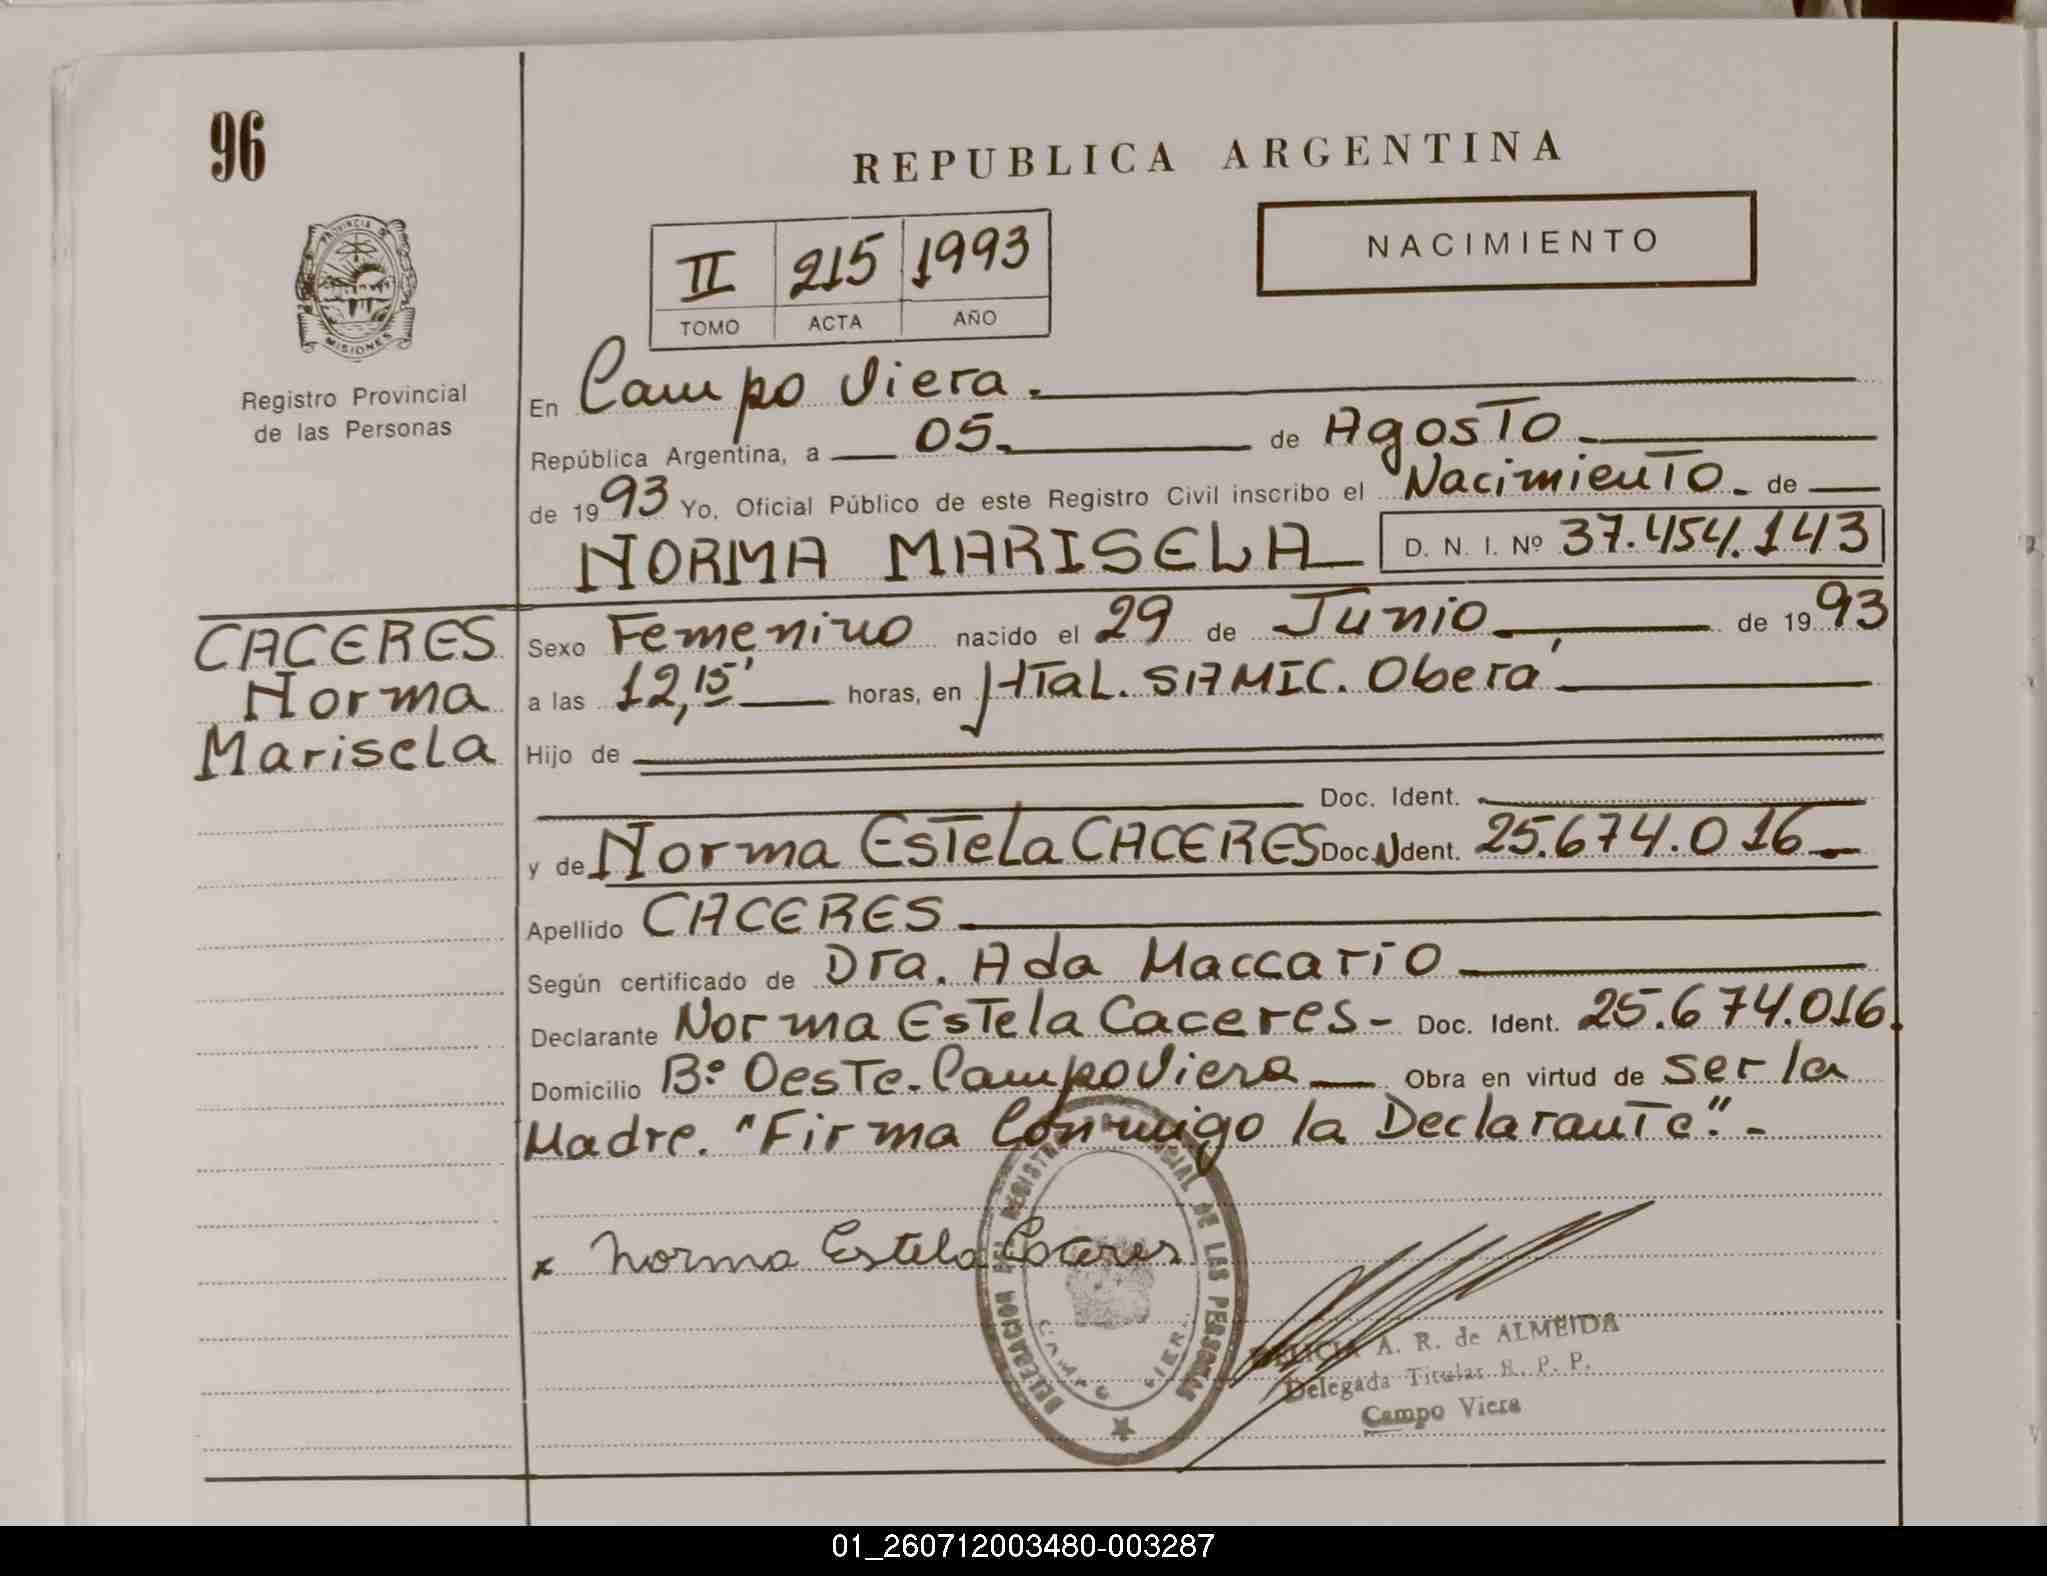 96
REPUBLICA ARGENTINA
NACIMIENTO
II 215 1993
TOMO ACTA AÑO
PROVINCIA DE
MISIONES
Registro Provincial
de las Personas
En Campo Viera.
República Argentina, a 05. de Agosto
de 1993 Yo, Oficial Público de este Registro Civil inscribo el Nacimiento de
NORMA MARISELA D. N. I. Nº 37.454.143
CACERES
Norma
Marisela
Sexo Femenino nacido el 29 de Junio de 1993
a las 12,15' horas, en HTaL. SAMIC. Oberá
Hijo de
Doc. Ident.
y de Norma Estela CACERES Doc. Ident. 25.674.016
Apellido CACERES
Según certificado de Dra. Ada Maccario
Declarante Norma Estela Caceres- Doc. Ident. 25.674.016.
Domicilio Bº Oeste. Campo Viera Obra en virtud de ser la
Madre. "Firma Conmigo la Declarante".-
x Norma Estela Caceres
DELEGACION DEL REGISTRO PROVINCIAL DE LAS PERSONAS
CAMPO VIERA
DELICIA A. R. de ALMEIDA
Delegada Titular R. P. P.
Campo Viera
01_260712003480-003287